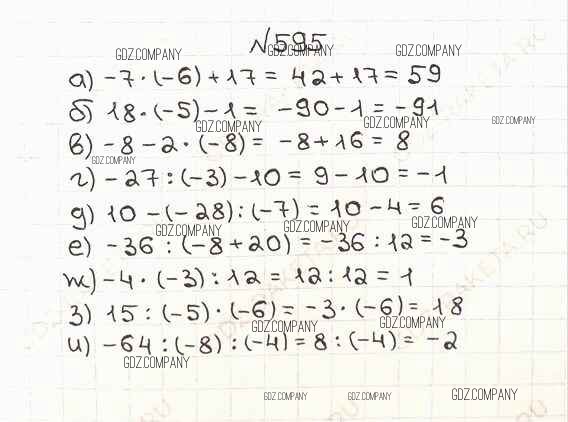 №595
GDZ.COMPANY GDZ.COMPANY GDZ.COMPANY
а) -7·(-6)+17 = 42+17 = 59
б) 18·(-5)-1 = -90-1 = -91
GDZ.COMPANY GDZ.COMPANY GDZ.COMPANY
в) -8-2·(-8) = -8+16 = 8
GDZ.COMPANY
г) -27:(-3)-10 = 9-10 = -1
д) 10-(-28):(-7) = 10-4 = 6
GDZ.COMPANY GDZ.COMPANY GDZ.COMPANY
е) -36:(-8+20) = -36:12 = -3
ж) -4·(-3):12 = 12:12 = 1
з) 15:(-5)·(-6) = -3·(-6) = 18
GDZ.COMPANY GDZ.COMPANY
и) -64:(-8):(-4) = 8:(-4) = -2
GDZ.COMPANY
GDZ.COMPANY GDZ.COMPANY GDZ.COMPANY